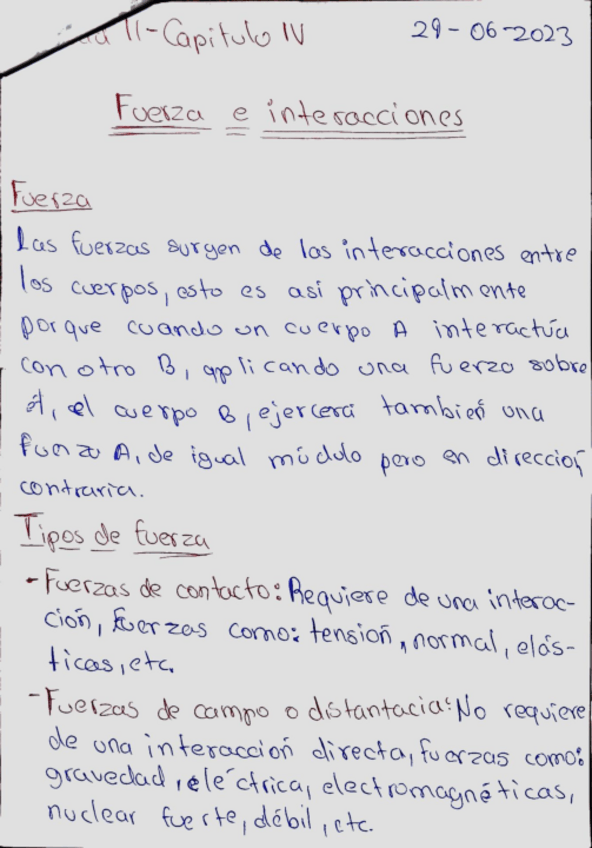 II-Capitulo IV 29-06-2023
Fuerza e interacciones
Fuerza
Las fuerzas surgen de las interacciones entre
los cuerpos, esto es así principalmente
porque cuando un cuerpo A interactúa
con otro B, aplicando una fuerza sobre
A, el cuerpo B, ejercerá también una
fuerza A, de igual módulo pero en dirección
contraria.
Tipos de fuerza
- Fuerzas de contacto: Requiere de una interac-
ción, fuerzas como: tensión, normal, elás-
ticas, etc.
- Fuerzas de campo o distantacia: No requiere
de una interacción directa, fuerzas como:
gravedad, eléctrica, electromagnéticas,
nuclear fuerte, débil, etc.